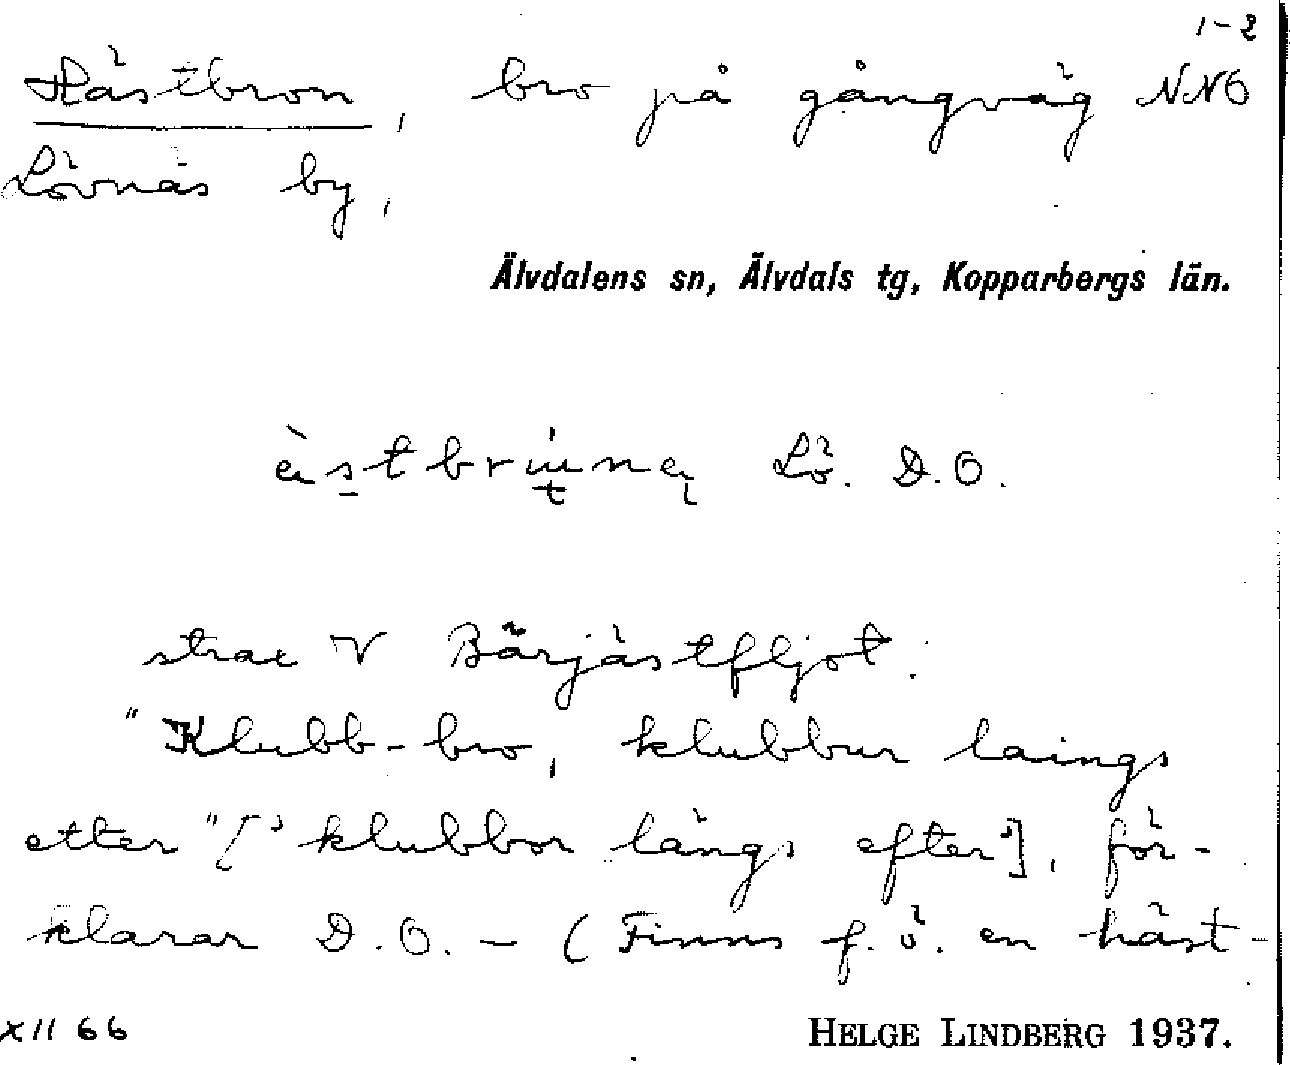 1-2
Hästbron, bro på gångväg NNO
Lövnäs by,
Älvdalens sn, Älvdals tg, Kopparbergs län.
Lö. D.O.
strax V Bärjästfljot.
"Klubb-bro, klubbur laings
etter" ['klubbor längs efter'], för-
klarar D.O. - (Finns f.ö. en häst-
XII 66
HELGE LINDBERG 1937.